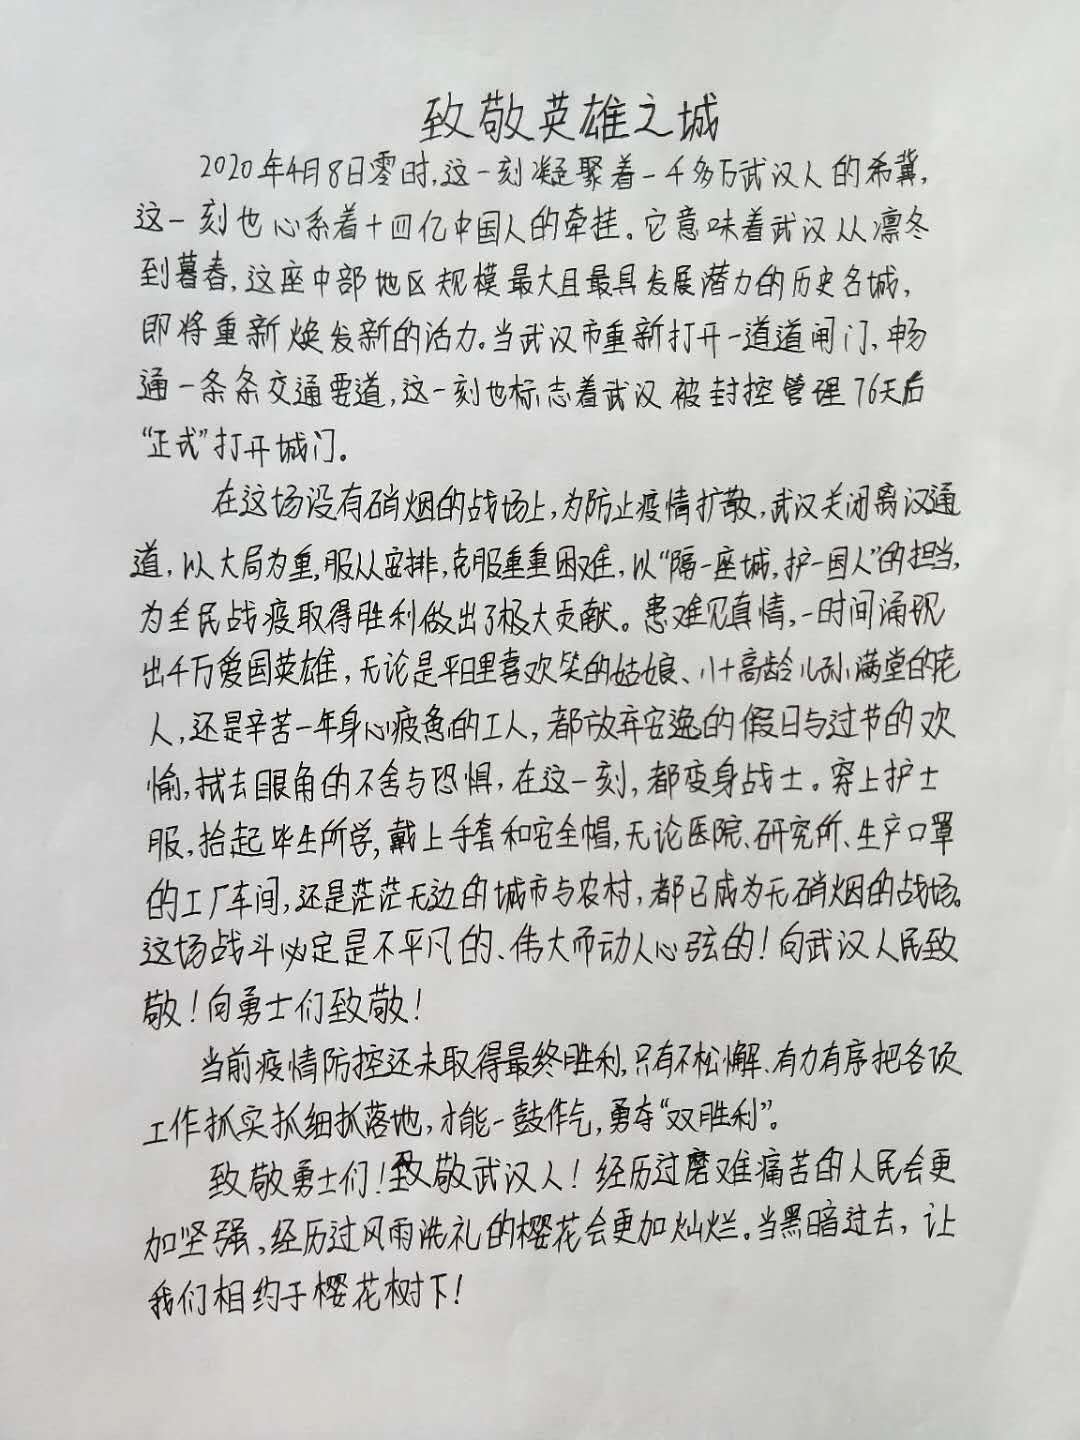 致敬英雄之城
2020年4月8日零时,这一刻凝聚着一千多万武汉人的希冀,
这一刻也心系着十四亿中国人的牵挂。它意味着武汉从凛冬
到暮春,这座中部地区规模最大且最具发展潜力的历史名城,
即将重新焕发新的活力。当武汉市重新打开一道道闸门,畅
通一条条交通要道,这一刻也标志着武汉被封控管理76天后
“正式”打开城门。
在这场没有硝烟的战场上,为防止疫情扩散,武汉关闭离汉通
道,以大局为重,服从安排,克服重重困难,以“隔一座城,护一国人”的担当,
为全民战疫取得胜利做出了极大贡献。患难见真情,一时间涌现
出千万爱国英雄,无论是平日里喜欢笑的姑娘、八十高龄儿孙满堂的老
人,还是辛苦一年身心疲惫的工人,都放弃安逸的假日与过节的欢
愉,拭去眼角的不舍与恐惧,在这一刻,都变身战士。穿上护士
服,拾起毕生所学,戴上手套和安全帽,无论医院、研究所、生产口罩
的工厂车间,还是茫茫无边的城市与农村,都已成为无硝烟的战场。
这场战斗必定是不平凡的、伟大而动人心弦的!向武汉人民致
敬!向勇士们致敬!
当前疫情防控还未取得最终胜利,只有不松懈、有力有序把各项
工作抓实抓细抓落地,才能一鼓作气,勇夺“双胜利”。
致敬勇士们!致敬武汉人!经历过磨难痛苦的人民会更
加坚强,经历过风雨洗礼的樱花会更加灿烂。当黑暗过去,让
我们相约于樱花树下!